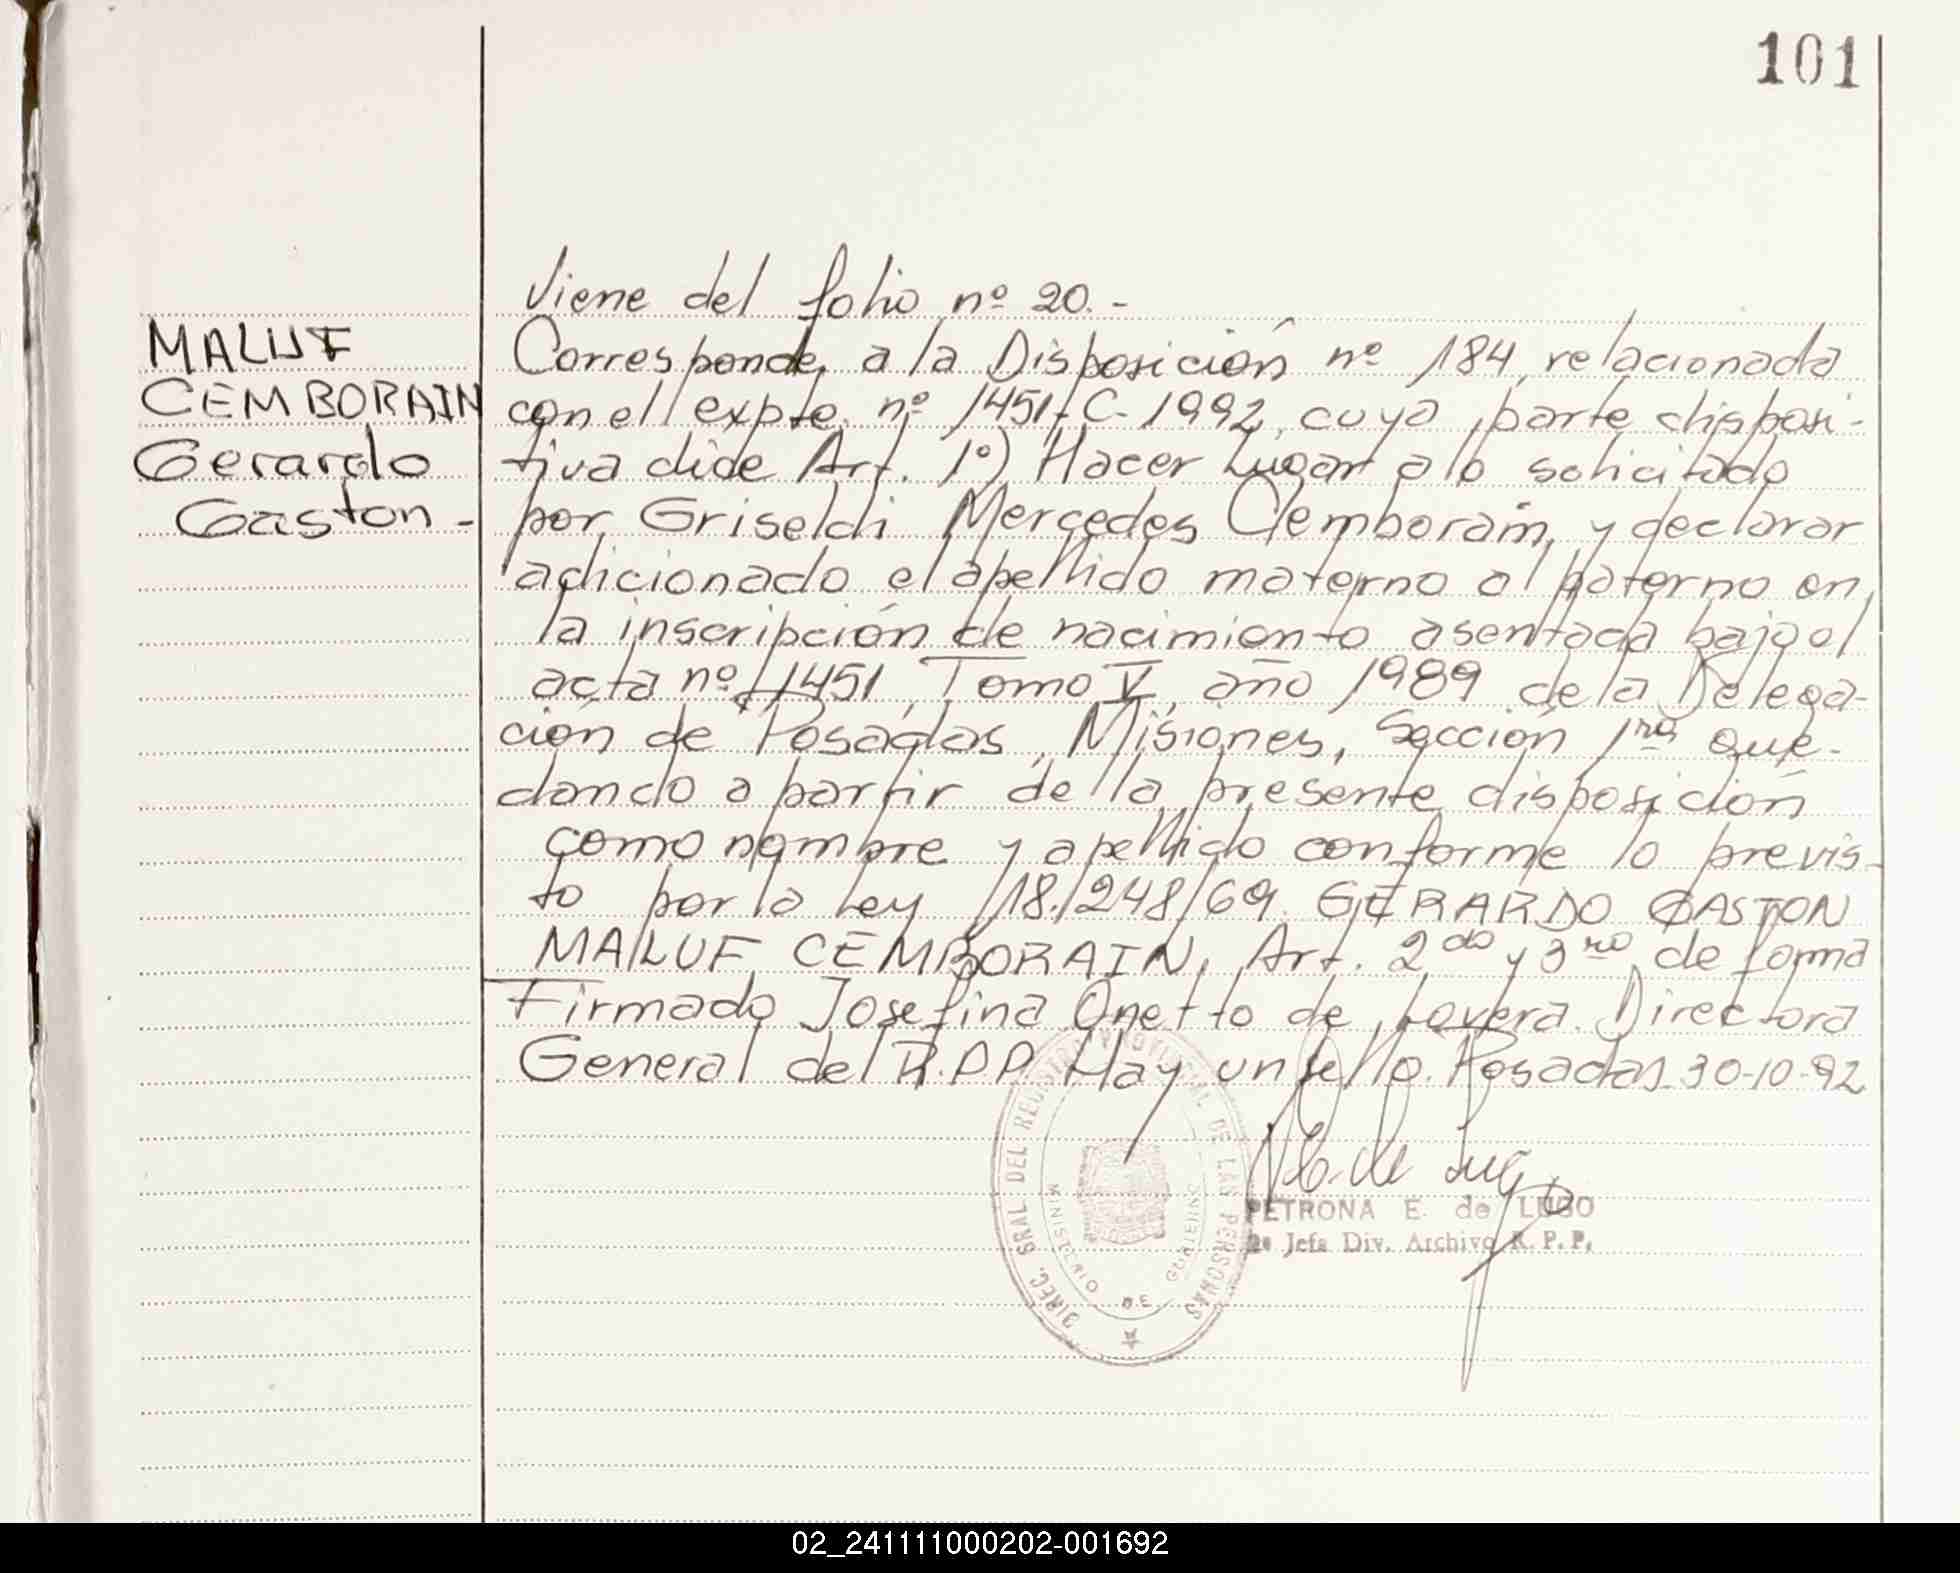 101
MALUF
CEMBORAIN
Gerardo
Gaston -
Viene del folio nº 20.-
Corresponde a la Disposición nº 184, relacionada
con el expte. nº 1451-C-1992, cuya parte disposi-
tiva dice Art. 1º) Hacer Lugar a lo solicitado
por Griseldi Mercedes Cemborain, y declarar
adicionado el apellido materno al paterno en
la inscripción de nacimiento asentada bajo el
acta nº 1451, Tomo V, año 1989 de la Delega-
ción de Posadas, Misiones, Sección 1ra que-
dando a partir de la presente disposición
como nombre y apellido conforme lo previs-
to por la Ley 18.248/69. GERARDO GASTON
MALUF CEMBORAIN, Art. 2do y 3ro de forma
Firmado Josefina Onetto de Lovera. Directora
General del R.P.P. Hay un sello. Posadas 30-10-92
P.E. de Lugo
PETRONA E. de LUGO
2ª Jefa Div. Archivo R.P.P.
DIREC. GRAL DEL REGISTRO PROVINCIAL DE LAS PERSONAS
MINISTERIO DE GOBIERNO
02_241111000202-001692